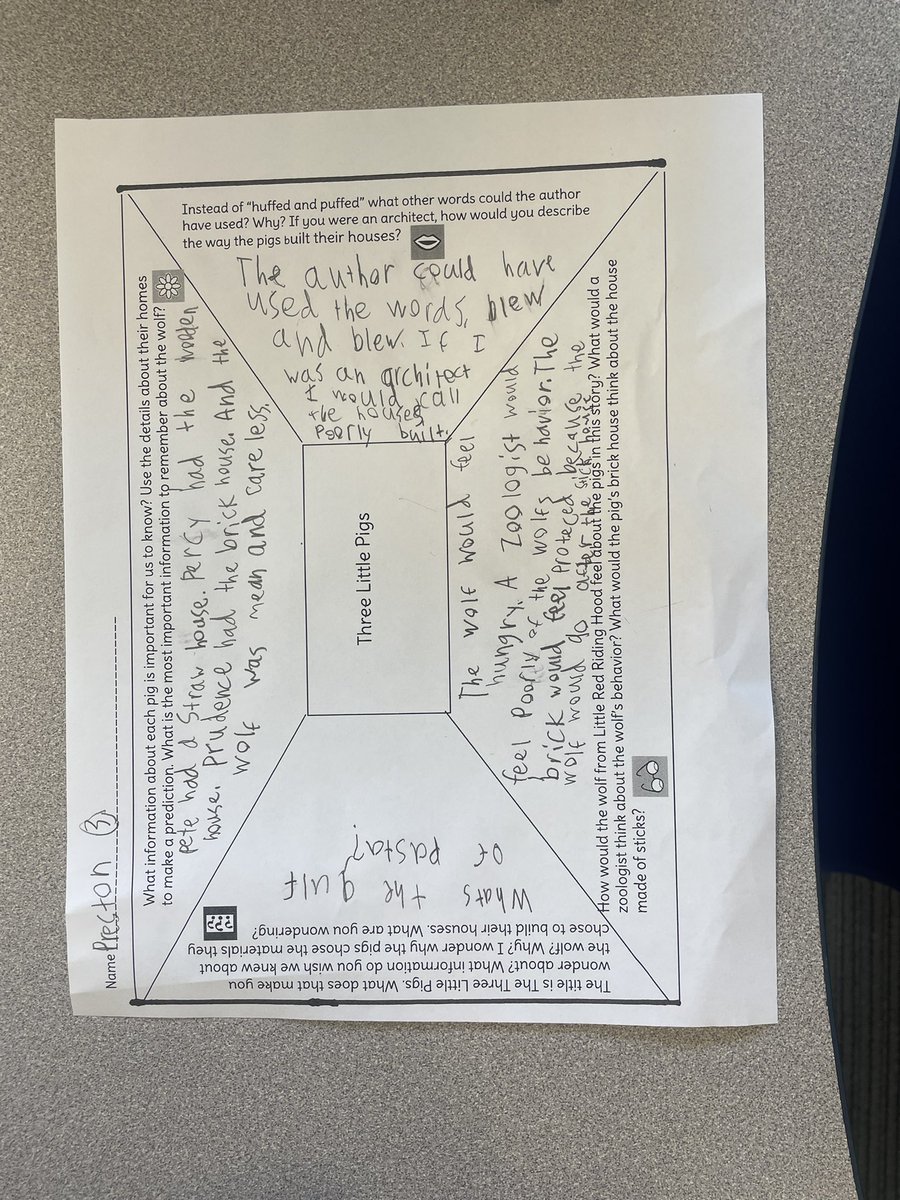 Name Preston B
What information about each pig is important for us to know? Use the details about their homes
to make a prediction. What is the most important information to remember about the wolf?
Pete had a Straw house. Percy had the wooden
house. Prudence had the brick house. And the
wolf was mean and care less.
Instead of "huffed and puffed" what other words could the author
have used? Why? If you were an architect, how would you describe
the way the pigs built their houses?
The author could have
used the words, blew
and blew. If I
was an architect
I would call
the houses
poorly built.
Three Little Pigs
The wolf would feel
hungry. A Zoologist would
feel poorly of the wolfs behavior. The
brick would feel proteced because the
wolf would go after the sick house
How would the wolf from Little Red Riding Hood feel about the pigs in this story? What would a
zoologist think about the wolf's behavior? What would the pig's brick house think about the house
made of sticks?
The title is The Three Little Pigs. What does that make you
wonder about? What information do you wish we knew about
the wolf? Why? I wonder why the pigs chose the materials they
chose to build their houses. What are you wondering?
???
Whats the gulf
of pasta?